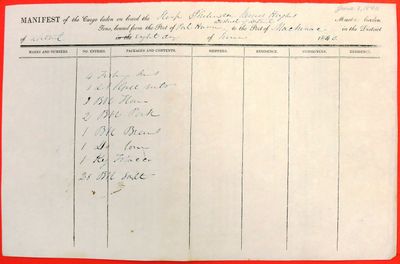 June 8, 1840
MANIFEST of the Cargo laden on board the Sloop James Hughes Master, burden
Tons, bound from the Port of Port Huron to the Port of Mackinac in the District
of Detroit eight day of June 1840.
MARKS AND NUMBERS. NO. ENTRIES. PACKAGES AND CONTENTS. SHIPPERS. RESIDENCE. CONSIGNEES. RESIDENCE.
4 Fishing
1
2 Bbl Flour
2 Bbl Pork
1 Bbl Beans
1 Do Corn
1 Keg Tobacco
28 Bbl Salt